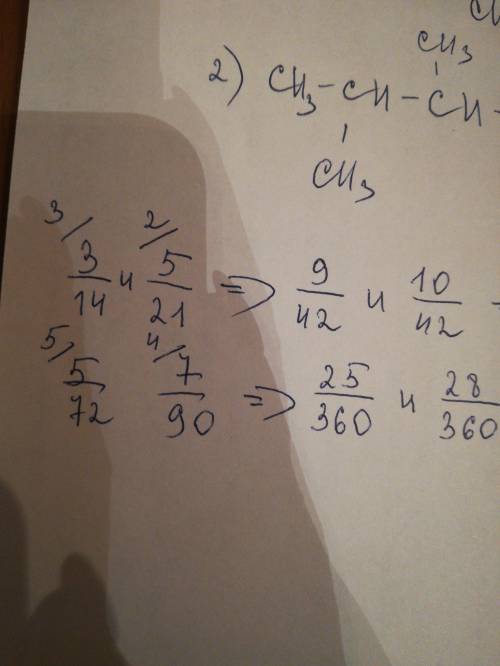 CH
CH₃
2) CH₃-CH-CH-
CH₃
3/ 2/
3/14 и 5/21 => 9/42 и 10/42 -
5/ 4/
5/72 7/90 => 25/360 и 28/360